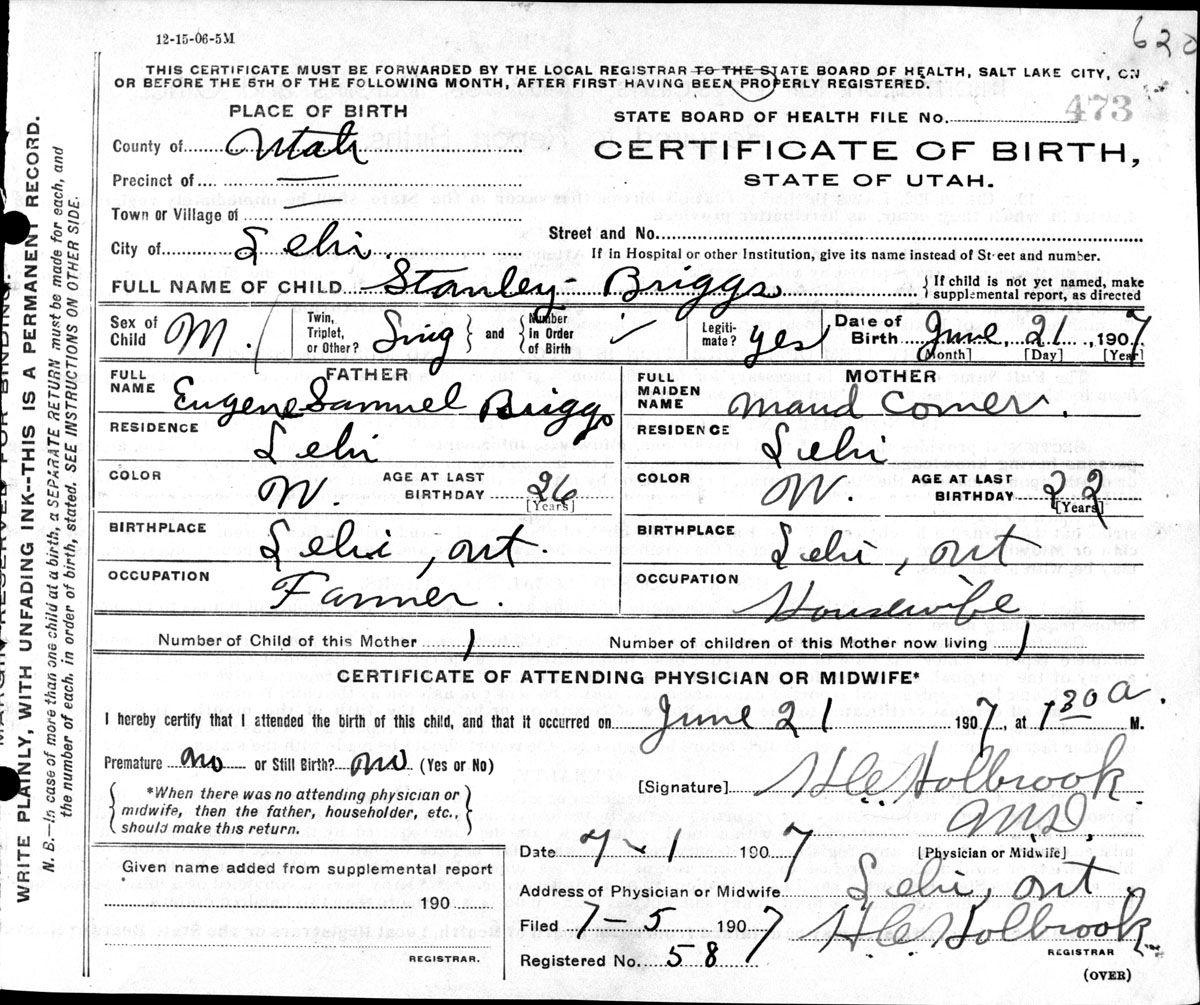 12-15-06-5M
THIS CERTIFICATE MUST BE FORWARDED BY THE LOCAL REGISTRAR TO THE STATE BOARD OF HEALTH, SALT LAKE CITY, ON
OR BEFORE THE 5TH OF THE FOLLOWING MONTH, AFTER FIRST HAVING BEEN PROPERLY REGISTERED.
PLACE OF BIRTH
County of Utah
Precinct of
Town or Village of
City of Lehi.
STATE BOARD OF HEALTH FILE No. 473
CERTIFICATE OF BIRTH,
STATE OF UTAH.
Street and No.
If in Hospital or other Institution, give its name instead of Street and number.
FULL NAME OF CHILD Stanley Briggs
If child is not yet named, make
supplemental report, as directed
Sex of Child M.
Twin, Triplet, or Other? Sing and Number in Order of Birth
Legitimate? yes
Date of Birth June 21, 1907
[Month] [Day] [Year]
FATHER
FULL NAME Eugene Samuel Briggs
RESIDENCE Lehi
COLOR W. AGE AT LAST BIRTHDAY 26
[Years]
BIRTHPLACE Lehi, Ut.
OCCUPATION Farmer.
MOTHER
FULL MAIDEN NAME Maud Comer.
RESIDENCE Lehi
COLOR W. AGE AT LAST BIRTHDAY 22
[Years]
BIRTHPLACE Lehi, Ut
OCCUPATION Housewife
Number of Child of this Mother 1
Number of children of this Mother now living 1
CERTIFICATE OF ATTENDING PHYSICIAN OR MIDWIFE*
I hereby certify that I attended the birth of this child, and that it occurred on June 21 1907, at 130 a M.
Premature no or Still Birth? no (Yes or No)
*When there was no attending physician or
midwife, then the father, householder, etc.,
should make this return.
[Signature] H.C. Holbrook
M.D.
[Physician or Midwife]
Date 7-1 1907
Address of Physician or Midwife Lehi, Ut.
Filed 7-5 1907 H.C. Holbrook
REGISTRAR
Registered No. 58
(OVER)
Given name added from supplemental report
190
REGISTRAR.
WRITE PLAINLY, WITH UNFADING INK--THIS IS A PERMANENT RECORD.
N. B.—In case of more than one child at a birth, a SEPARATE RETURN must be made for each, and
the number of each, in order of birth, stated. SEE INSTRUCTIONS ON OTHER SIDE.